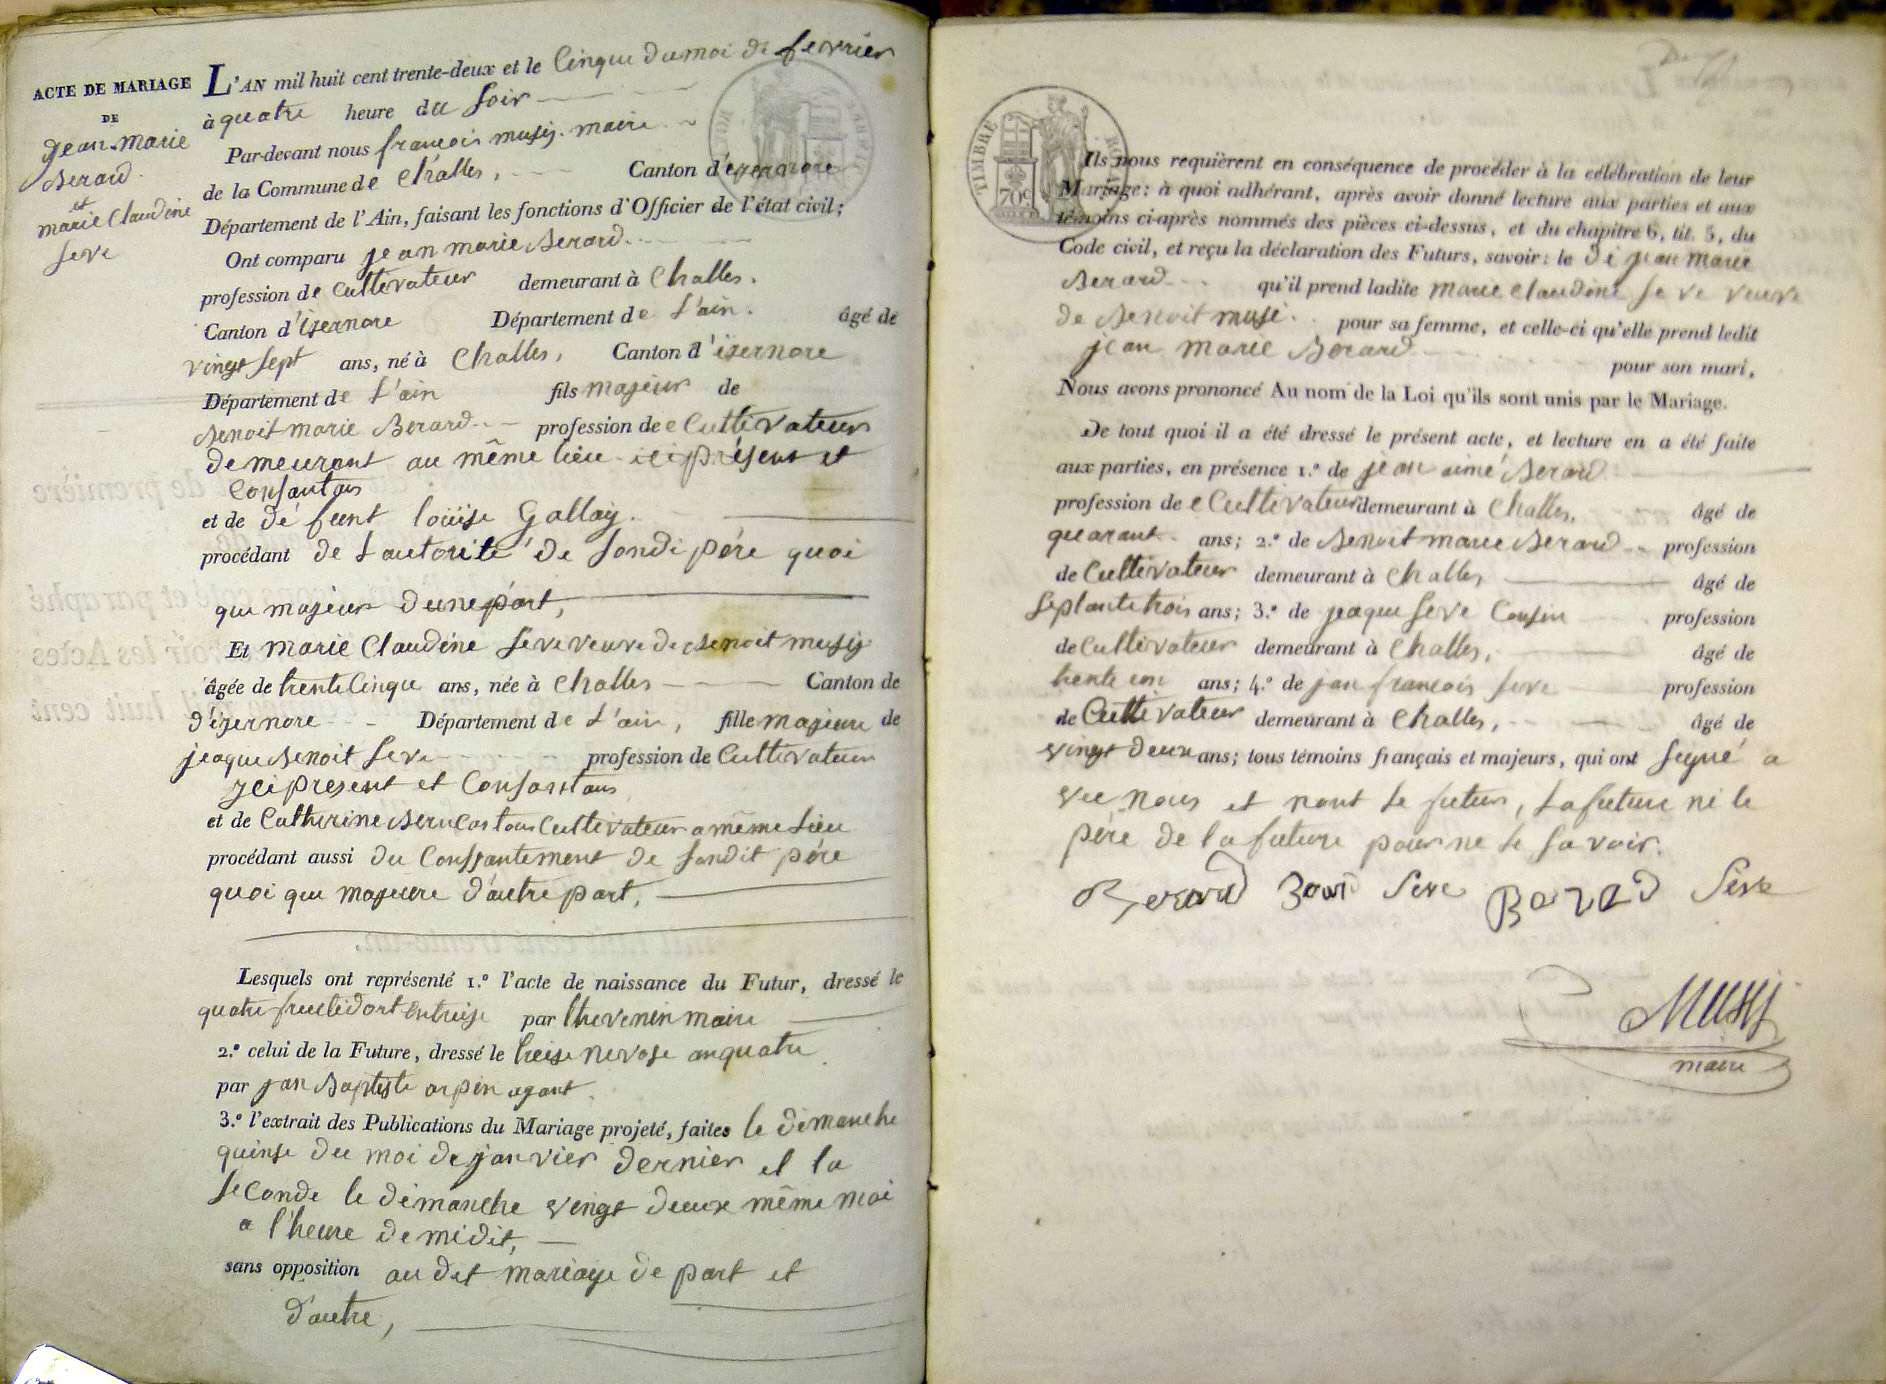 ACTE DE MARIAGE
DE
jean-marie
Berard
et
marie Claudine
Seve
L'AN mil huit cent trente-deux et le Cinque du moi de fevrier
à quatre heure du Soir
Par-devant nous francois musij. maire
de la Commune de Challes, Canton d'izernore
Département de l'Ain, faisant les fonctions d'Officier de l'état civil;
Ont comparu jean marie Berard
profession de Cultivateur demeurant à Challes.
Canton d'izernore Département de L'ain. âgé de
vingt Sept ans, né à Challes, Canton d'izernore
Département de L'ain fils majeur de
Benoit marie Berard profession de Cultivateur
demeurant au même lieu ici présent et
Consantans
et de défunt loüise Gallay.
procédant de Lautorité de Sondi pére quoi
que majeur dune part,
Et marie Claudine Seve veuve de Benoit musij
âgée de trente Cinque ans, née à Challes Canton de
d'izernore Département de L'ain, fille majeure de
jeaque Benoit Seve profession de Cultivateur
ici present et Consantans
et de Catherine tous Cultivateur a même Lieu
procédant aussi du Consantement de Sondit pére
quoi que majeure d'autre part,
Lesquels ont représenté 1.º l'acte de naissance du Futur, dressé le
quatre fructidort par thevenin maire
2.º celui de la Future, dressé le treise nivose an quatre
par jan Baptiste arpin agant
3.º l'extrait des Publications du Mariage projeté, faites le dimanche
quinse du moi de janvier dernier et la
Seconde le dimanche vingt deux même moi
a l'heure de midit,
sans opposition au dit mariage de part et
d'autre,
TIMBRE ROYAL
70c
Ils nous requièrent en conséquence de procéder à la célébration de leur
Mariage: à quoi adhérant, après avoir donné lecture aux parties et aux
témoins ci-après nommés des pièces ci-dessus, et du chapitre 6, tit. 5, du
Code civil, et reçu la déclaration des Futurs, savoir: le di jean marie
Berard qu'il prend ladite marie Claudine Seve veuve
de Benoit musi. pour sa femme, et celle-ci qu'elle prend ledit
jean marie Berard pour son mari,
Nous avons prononcé Au nom de la Loi qu'ils sont unis par le Mariage.
De tout quoi il a été dressé le présent acte, et lecture en a été faite
aux parties, en présence 1.º de jean aimé Berard
profession de Cultivateur demeurant à Challes, âgé de
quarant ans; 2.º de Benoit marie Berard profession
de Cultivateur demeurant à Challes âgé de
Septante trois ans; 3.º de jeaque Seve Cousin profession
de Cultivateur demeurant à Challes, âgé de
trente un ans; 4.º de jan francois Seve profession
de Cultivateur demeurant à Challes, âgé de
vingt deux ans; tous témoins français et majeurs, qui ont Segné a
vec nous et nont le futur, La future ni le
pére de la future pour ne le Savoir.
Berard Seve Seve
MUSIJ
maire